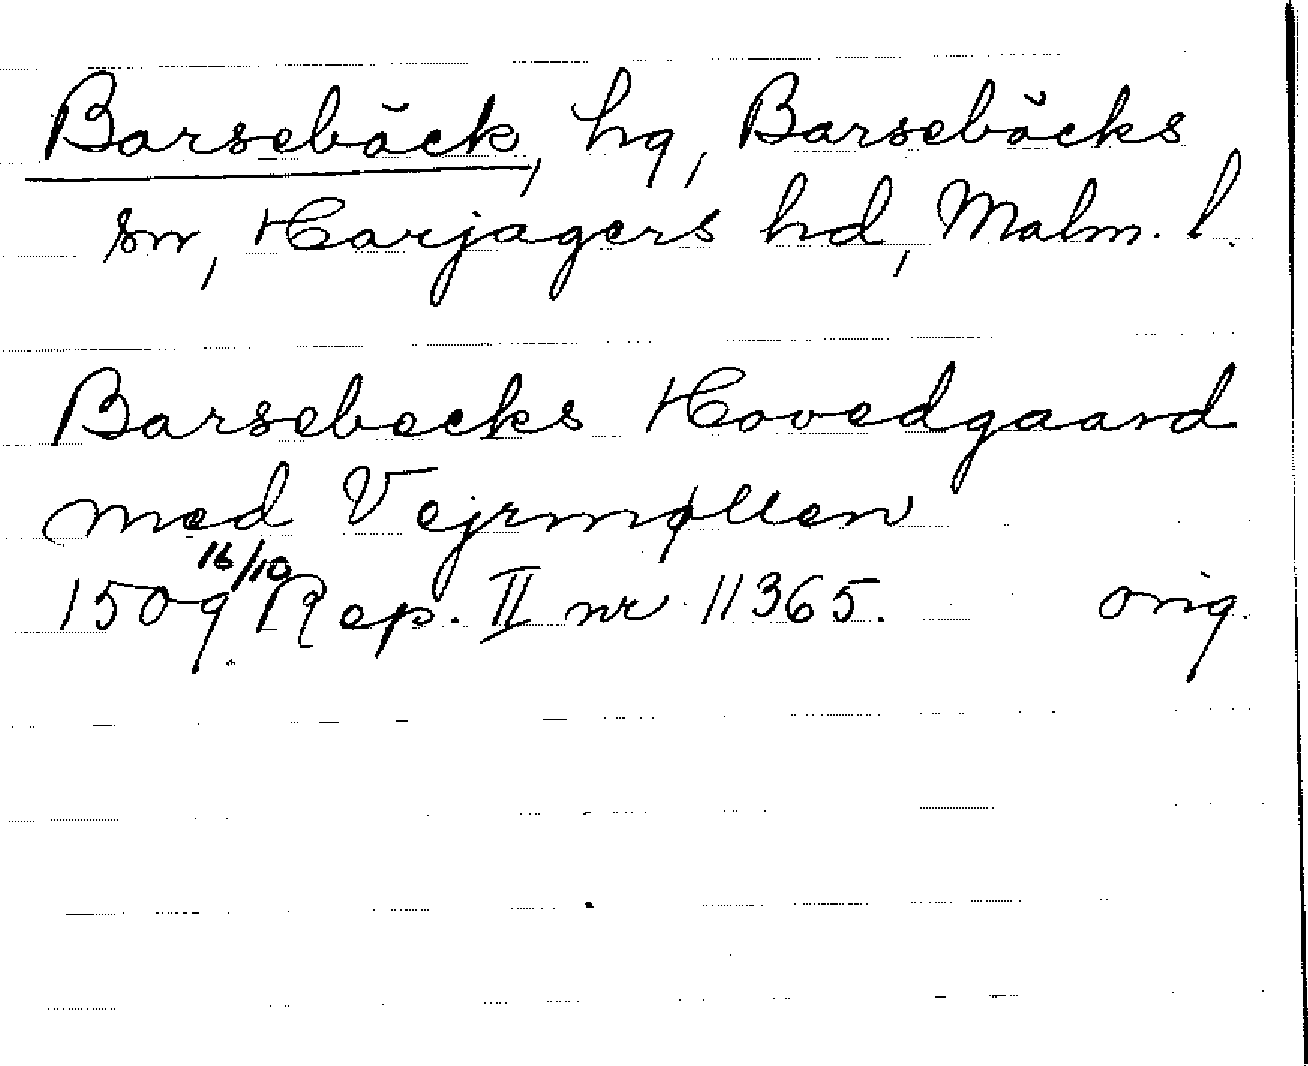 Barsebäck, hg, Barsebäcks
sn, Harjagers hd, Malm. l.
Barsebecks Hovedgaard
med Vejrmøllen
1509 16/10 Rep. II nr 11365. orig.